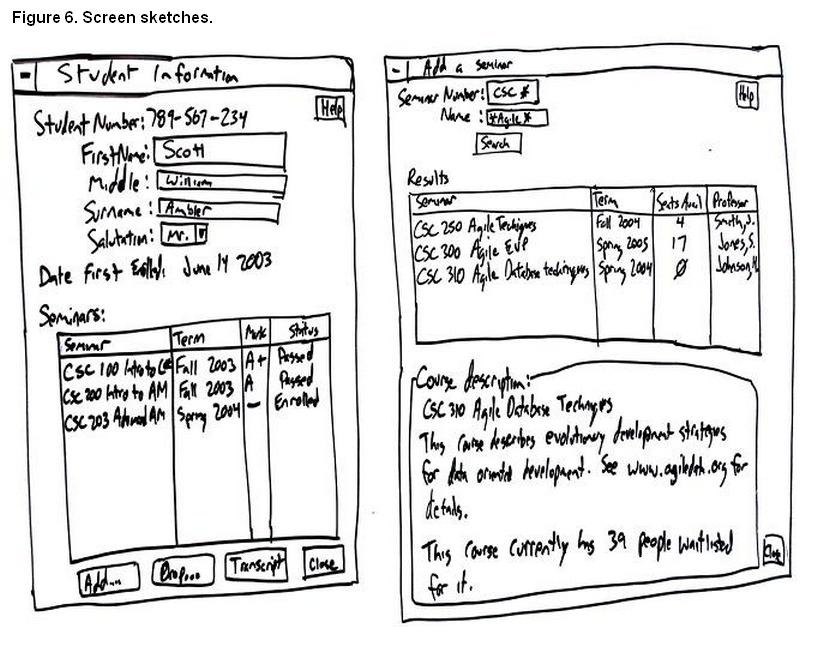 Figure 6. Screen sketches.
Student Information
Help
Student Number: 789-567-234
First Name: Scott
Middle: William
Surname: Ambler
Salutation: Mr.
Date First Enlled: June 14 2003
Seminars:
Seminar Term Mark Status
CSC 100 Intro to Fall 2003 A+ Passed
CSC 200 Intro to AM Fall 2003 A Passed
CSC 203 AM Spring 2004 — Enrolled
Add... Drop... Transcript Close
Add a seminar
Seminar Number: CSC *
Help
Name: *Agile*
Search
Results
Seminar Term Seats Avail Professor
CSC 250 Agile Techniques Fall 2004 4 Smith, J.
CSC 300 Agile EUP Spring 2005 17 Jones, S.
CSC 310 Agile Database techniques Spring 2004 Ø Johnson, M.
Course description:
CSC 310 Agile Database Techniques
This course describes evolutionary development strategies
for data oriented development. See www.agiledata.org for
details.
This course currently has 39 people waitlisted
for it.
Close